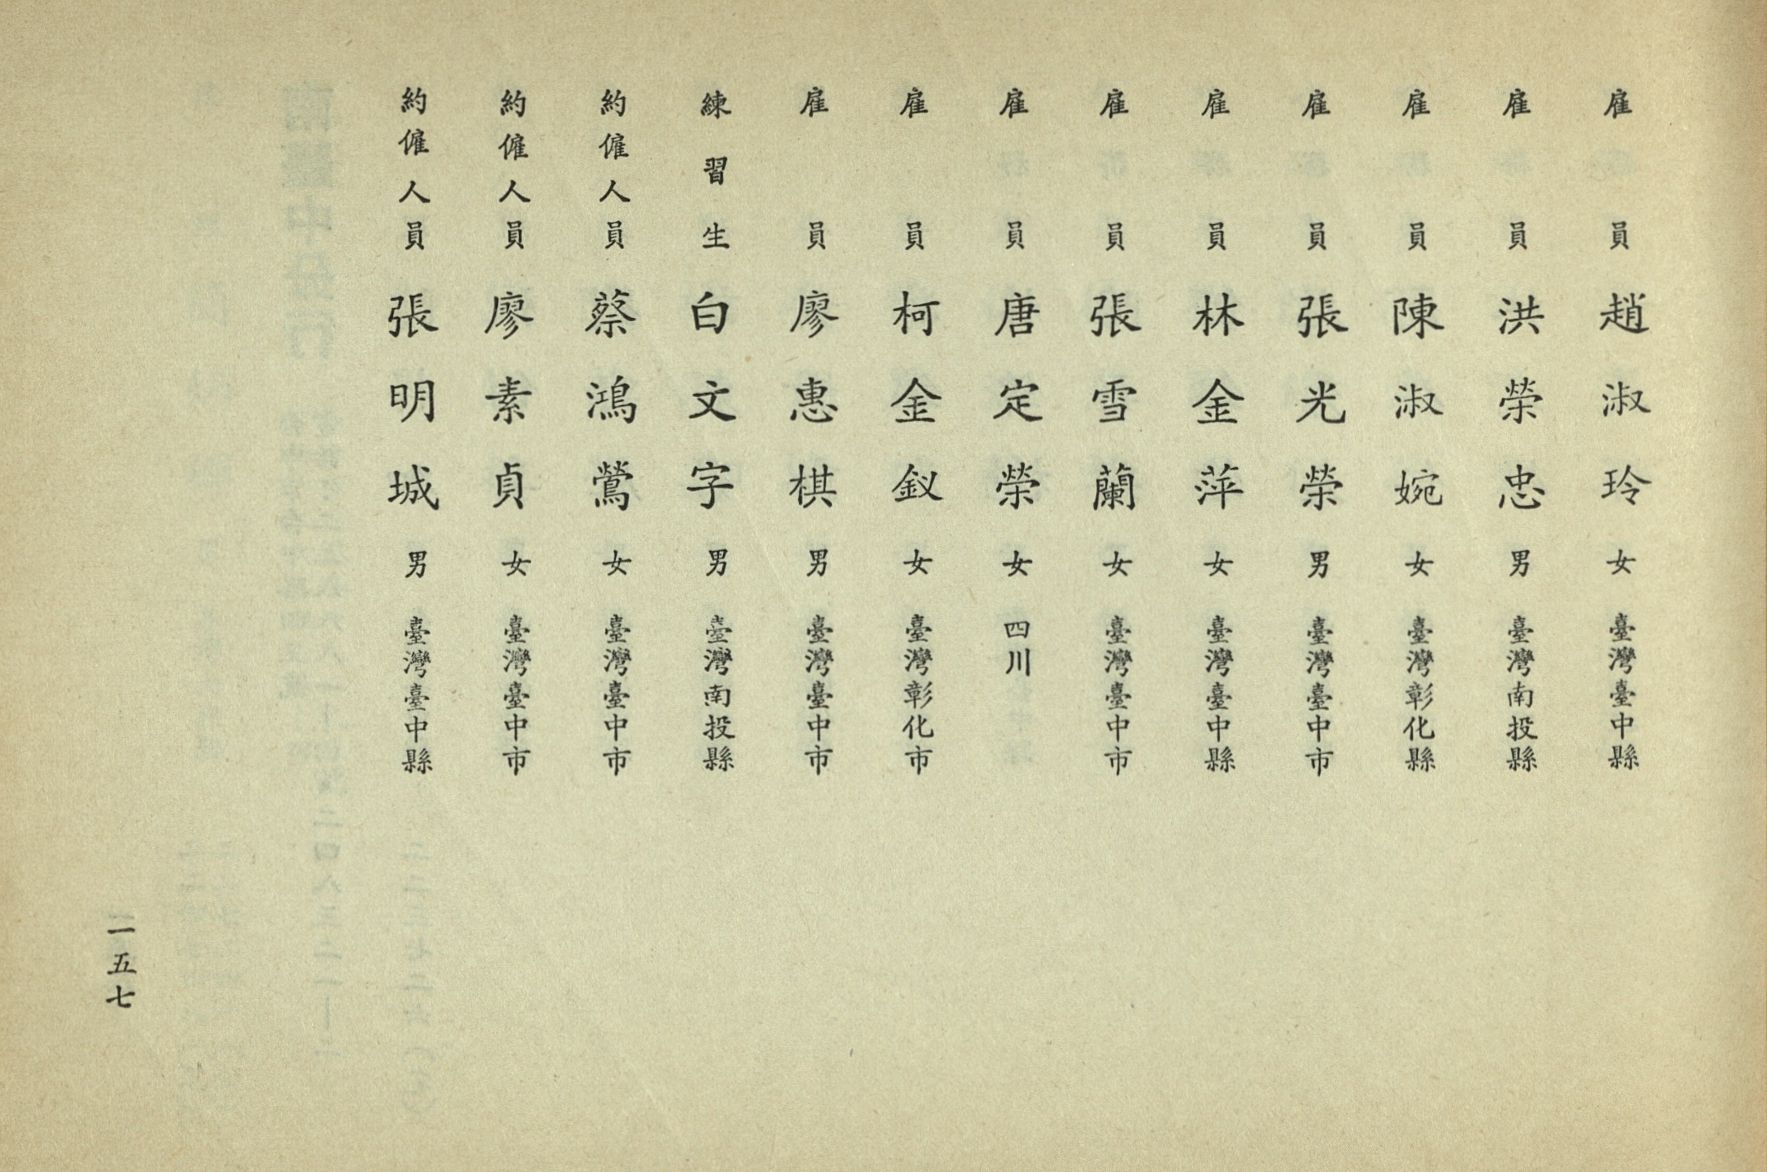 雇員 趙淑玲 女 臺灣臺中縣
雇員 洪榮忠 男 臺灣南投縣
雇員 陳淑婉 女 臺灣彰化縣
雇員 張光榮 男 臺灣臺中市
雇員 林金萍 女 臺灣臺中縣
雇員 張雪蘭 女 臺灣臺中市
雇員 唐定榮 女 四川
雇員 柯金釵 女 臺灣彰化市
雇員 廖惠棋 男 臺灣臺中市
練習生 白文字 男 臺灣南投縣
約僱人員 蔡鴻鶯 女 臺灣臺中市
約僱人員 廖素貞 女 臺灣臺中市
約僱人員 張明城 男 臺灣臺中縣
二五七